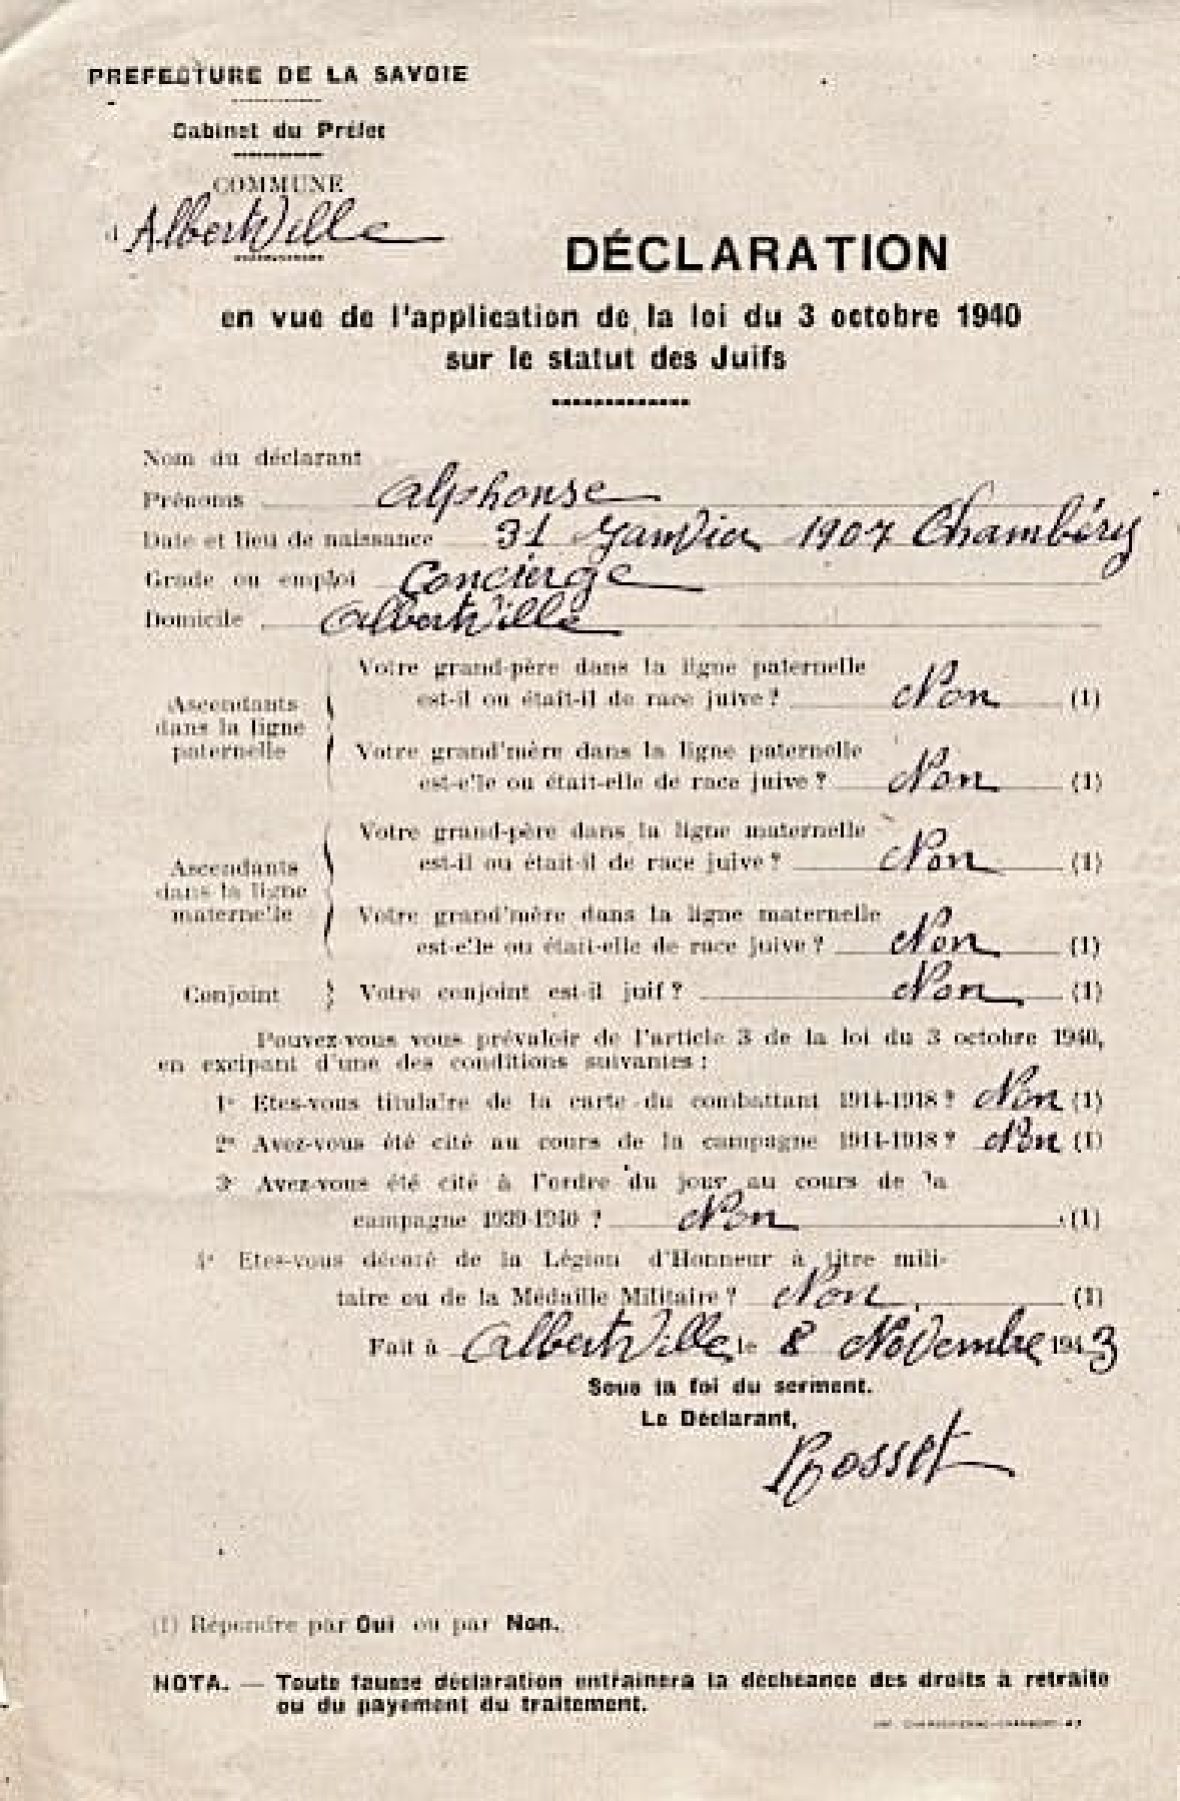 PREFECTURE DE LA SAVOIE
Cabinet du Préfet
COMMUNE
d'AlbertVille
DÉCLARATION
en vue de l'application de la loi du 3 octobre 1940
sur le statut des Juifs
Nom du déclarant
Prénoms Alphonse
Date et lieu de naissance 31 Janvier 1907 Chambéry
Grade ou emploi Concierge
Domicile AlbertVille
Ascendants dans la ligne paternelle
Votre grand-père dans la ligne paternelle
est-il ou était-il de race juive ? Non (1)
Votre grand'mère dans la ligne paternelle
est-elle ou était-elle de race juive ? Non (1)
Ascendants dans la ligne maternelle
Votre grand-père dans la ligne maternelle
est-il ou était-il de race juive ? Non (1)
Votre grand'mère dans la ligne maternelle
est-elle ou était-elle de race juive ? Non (1)
Conjoint } Votre conjoint est-il juif ? Non (1)
Pouvez-vous vous prévaloir de l'article 3 de la loi du 3 octobre 1940,
en excipant d'une des conditions suivantes :
1° Etes-vous titulaire de la carte du combattant 1914-1918 ? Non (1)
2° Avez-vous été cité au cours de la campagne 1914-1918 ? Non (1)
3° Avez-vous été cité à l'ordre du jour au cours de la
campagne 1939-1940 ? Non (1)
4° Etes-vous décoré de la Légion d'Honneur à titre mili-
taire ou de la Médaille Militaire ? Non (1)
Fait à AlbertVille le 8 Novembre 1943
Sous la foi du serment.
Le Déclarant,
Rosset
(1) Répondre par Oui ou par Non.
NOTA. — Toute fausse déclaration entraînera la déchéance des droits à retraite
ou du payement du traitement.